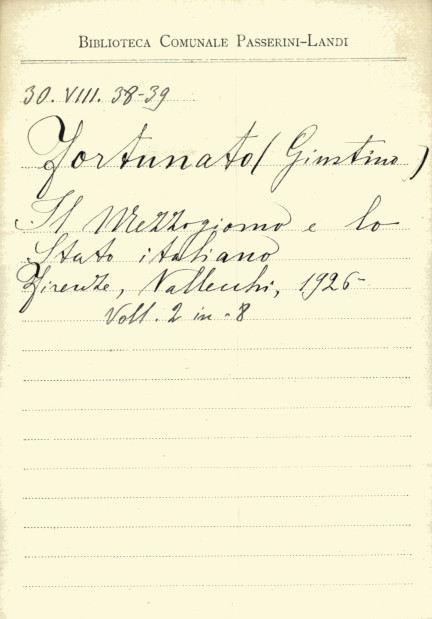 BIBLIOTECA COMUNALE PASSERINI-LANDI
30. VIII. 38-39
Fortunato (Giustino)
Il Mezzogiorno e lo
Stato italiano
Firenze, Vallecchi, 1926
Voll. 2 in-8